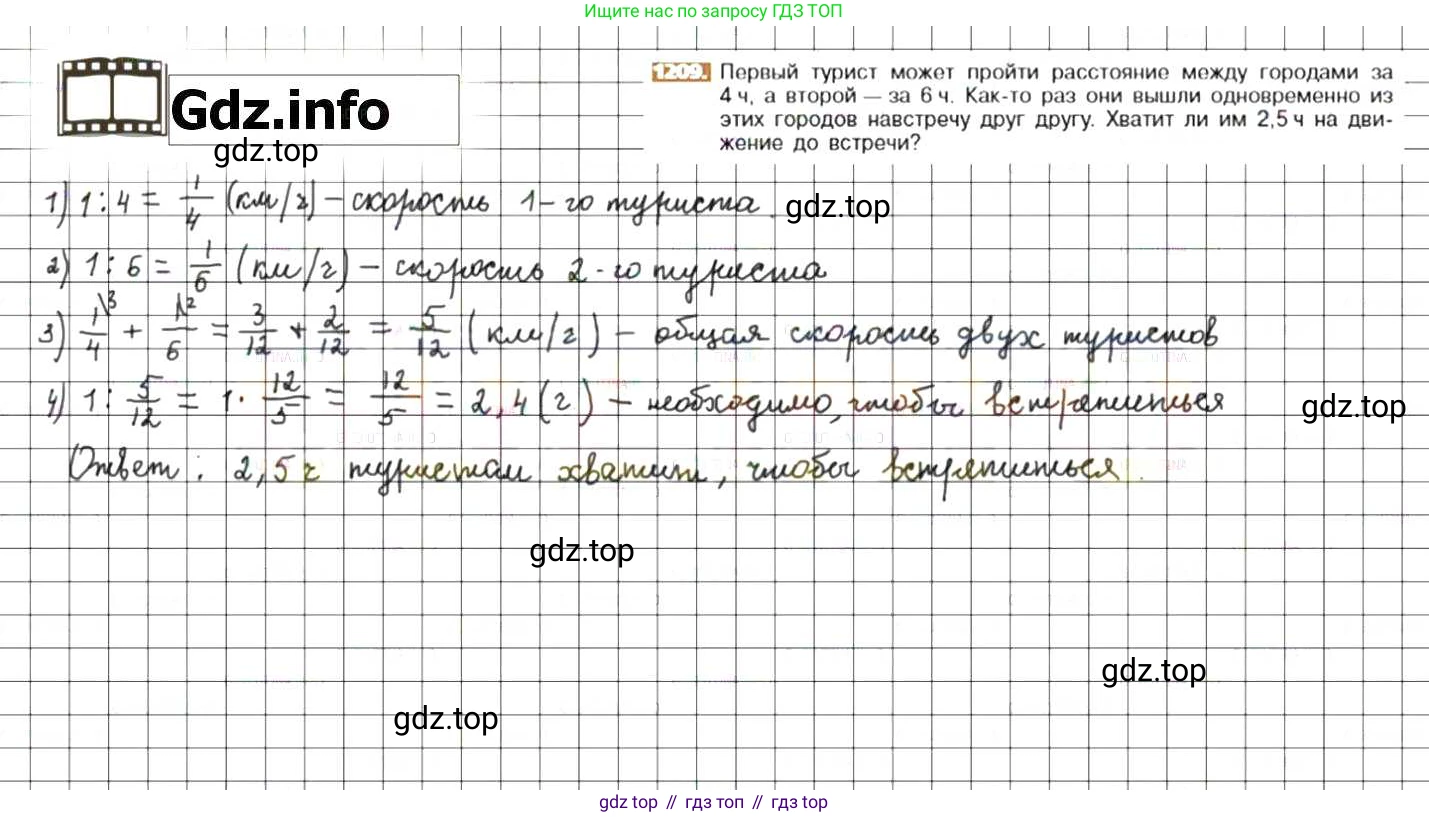 Ищите нас по запросу ГДЗ ТОП
Gdz.info
gdz.top
1209. Первый турист может пройти расстояние между городами за
4 ч, а второй — за 6 ч. Как-то раз они вышли одновременно из
этих городов навстречу друг другу. Хватит ли им 2,5 ч на дви-
жение до встречи?
1) 1 : 4 = 1/4 (км/ч) – скорость 1-го туриста. gdz.top
2) 1 : 6 = 1/6 (км/ч) – скорость 2-го туриста
3) 1\3/4 + 1\2/6 = 3/12 + 2/12 = 5/12 (км/ч) – общая скорость двух туристов
4) 1 : 5/12 = 1 · 12/5 = 12/5 = 2,4 (ч) – необходимо, чтобы встретиться gdz.top
Ответ: 2,5 ч туристам хватит, чтобы встретиться.
gdz.top
gdz.top
gdz.top
gdz top // гдз топ // gdz top